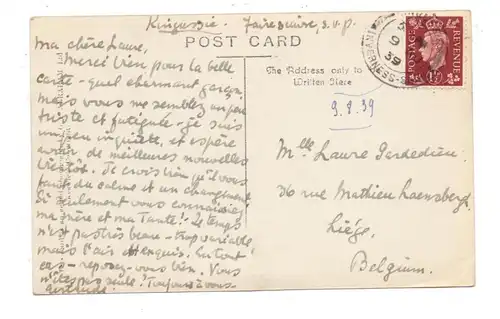 Kingussie. Faire suivre, s.v.p.
POST CARD
Ma chère Laure,
Merci bien pour la belle
carte - quel charmant garçon,
mais vous me semblez un peu
triste et fatiguée - je suis
un peu inquiète, et espère
avoir de meilleures nouvelles
bientôt. Je crois bien qu'il vous
faut du calme et un changement
Si seulement vous connaissiez
ma mère et ma Tante! Le temps
n'est pas très beau - trop variable
mais l'air En tout
cas - reposez-vous bien. Vous
n'êtes pas seule! Toujours à vous
Gertrude.
The Address only to be
Written Here
9.8.39
Mlle Laure Dardedieu
36 rue Mathieu Laensbergh
Liége.
Belgium.
INVERNESS-S
9
39
POSTAGE
REVENUE
1½